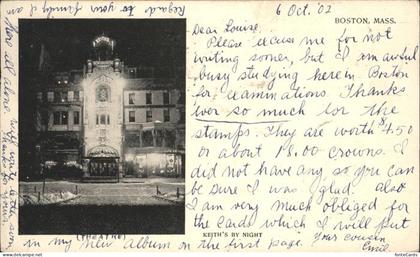 Regard to your family I am
6 Oct. '02
BOSTON, MASS.
Dear Louise.
Please excuse me for not
writing sooner, but I am awful
busy studying here in Boston
for examinations. Thanks
ever so much for the
stamps. They are worth $4.50
or about 18.00 crowns. I
did not have any so you can
be sure I was glad. also
I am very much obliged for
the cards which I will put
in my new album on the first page.
your cousin
Emil.
(THEATRE)
KEITH'S BY NIGHT
here all alone. will write
soon